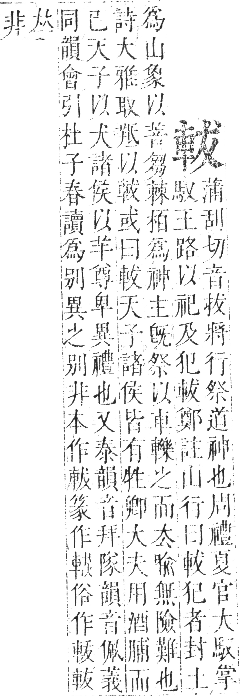 軷
蒲刮切音拔將行祭道神也周禮夏官大馭掌
馭王路以祀及犯軷鄭註山行曰軷犯者封土
為山象以菩芻棘栢為神主旣祭以車轢之而去喻無險難也
詩大雅取羝以軷或曰軷天子諸侯皆有牲卿大夫用酒脯而
已天子以犬諸侯以羊尊卑異禮也又泰韻音拜隊韻音佩義
同韻會引杜子春讀為別異之別非本作軷篆作俗作軷
非